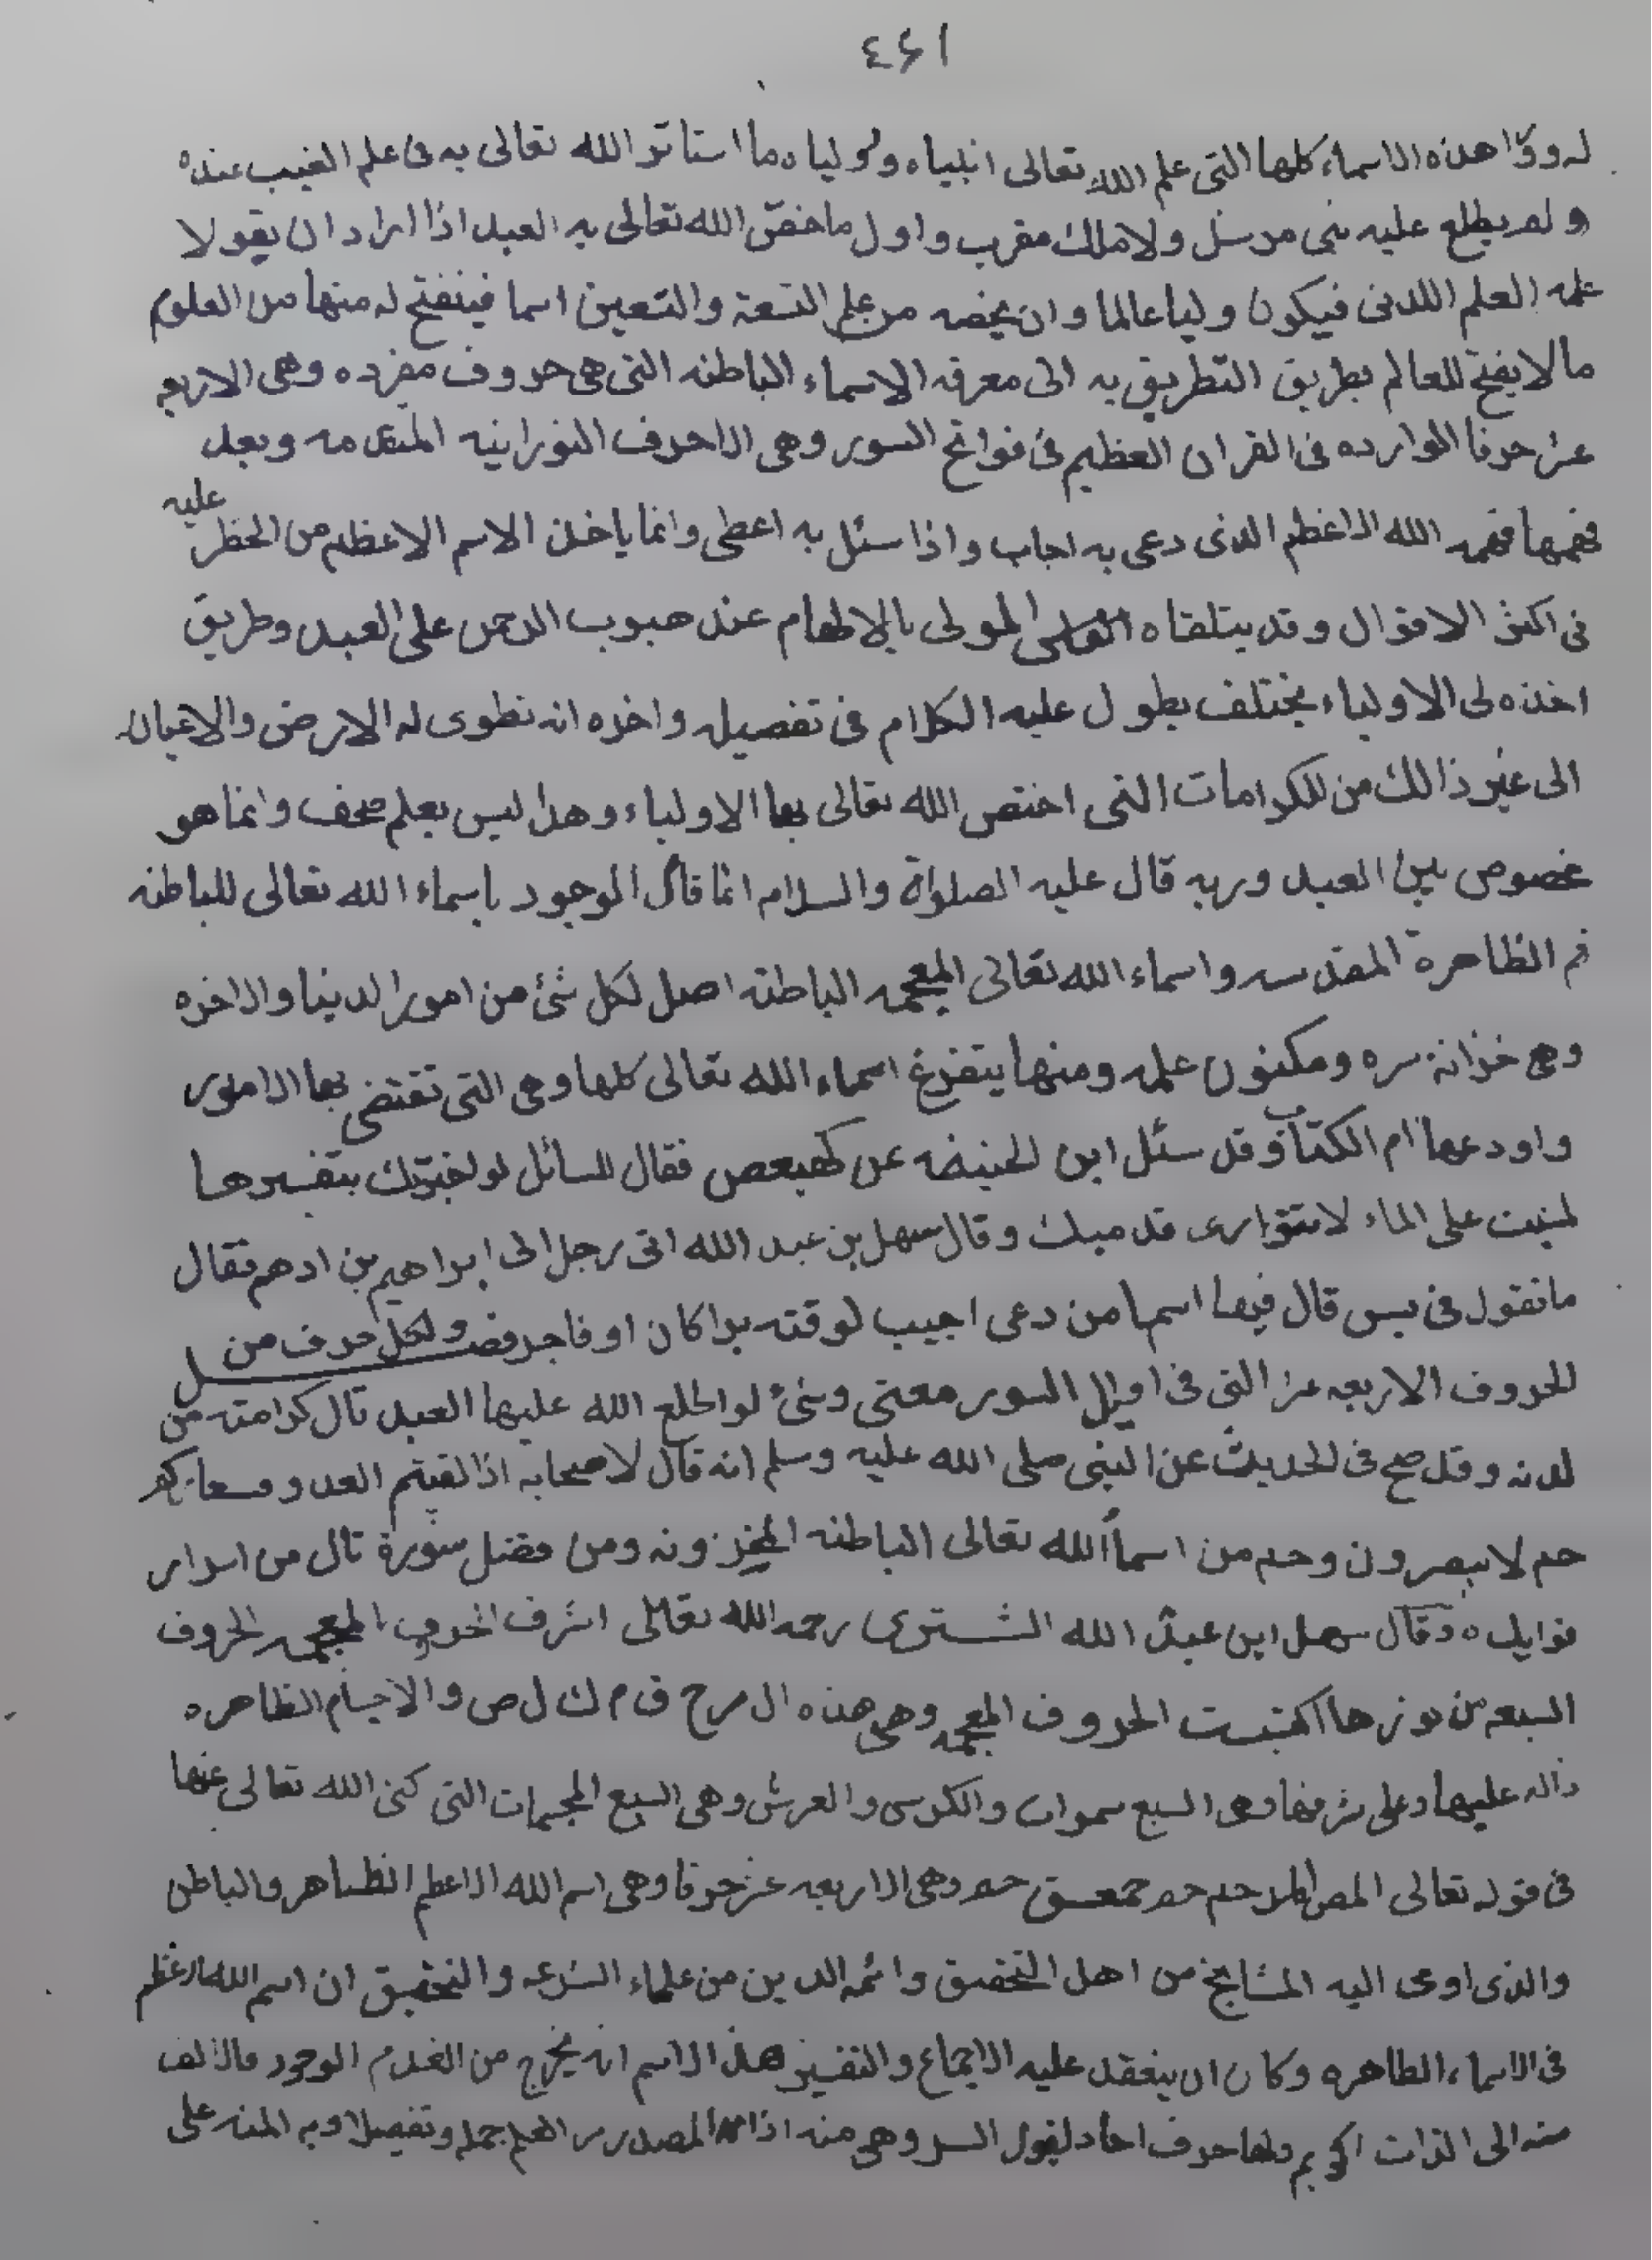 ٤٦١
هذه الاسماء كلها التى علم الله تعالى انبياء واولياه ما استاثر الله تعالى به فى علم الغيب عنده
ولم يطلع عليه نبى مرسل ولا ملك مقرب واول ما خصّ الله تعالى به العبد اذا اراد ان يقولا
علمه العلم اللدنى فيكون وليا عالما وان يخصه من علم التسعة والتسعين اسما فينفتح له منها من العلوم
ما لا يفتح للعالم بطريق التطريق به الى معرفه الاسماء الباطنه التى هى حروف مفرده وهى الاربعه
عشر حرفا الوارده فى القران العظيم فى فواتح السور وهى الاحرف النورانيه المتقدمه وبعد
فهمها فهمه الله الاعظم الذى دعى به اجاب واذا سئل به اعطى وانما ياخذ الاسم الاعظم من الخظر عليه
فى اكثر الاقوال وقد يتلقاه المولى بالالهام عند هبوب الرحمن على العبد وطريق
اخذه لى الاولياء يختلف يطول عليه الكلام فى تفصيله واخره انه تطوى له الارض والاعيان
الى غير ذالك من الكرامات التى اختص الله تعالى بها الاولياء وهذا ليس بعلم صحف وانما هو
خصوص بين العبد وربه قال عليه الصلواة والسلام انما قال الوجود باسماء الله تعالى الباطنه
ثم الظاهرة المقدسه واسماء الله تعالى المعجمه الباطنه اصل لكل شئ من امور الدينا والاخره
وهى خزانة سره ومكنون علمه ومنها يتفرع اسماء الله تعالى كلها وهى التى تقتضى بها الامور
واودعها ام الكتاب وقد سئل ابن الحنيفه عن كهيعص فقال للسائل لو اخبرتك بتفسيرها
لمشيت على الماء لا يتوارى قدميك وقال سهل بن عبد الله اتى رجل الى ابراهيم بن ادهم فقال
ما تقول فى يس قال فيها اسما من دعى اجيب لوقته برا كان او فاجر فصل ولكل حرف من
الحروف الاربعه عشر التى فى اوايل السور معنى وشئ لو اطلع الله عليها العبد نال كرامته من
لدنه وقد صح فى الحديث عن النبى صلى الله عليه وسلم انه قال لاصحابه اذا لقيتم العدو فشعاركم
حم لا يبصرون وحم من اسماء الله تعالى الباطنه المخزونه ومن فضل سورة نال من اسرار
فوايده وقال سهل ابن عبد الله التسترى رحمه الله تعالى اشرف الحروف المعجمه الحروف
السبعه من نورها اكتبست الحروف المعجمه وهى هذه ال م ر ح ق م ك ل ص والاجسام الظاهره
داله عليها وعلى شرفها وهى السبع سموات والكرسى والعرش وهى السبع المعجمات التى كنى الله تعالى عنها
فى قوله تعالى المص المر حم حم حمعسق حم وهى الاربعه عشر حرفا وهى اسم الله الاعظم الظاهر والباطن
والذى اوحى اليه المشايخ من اهل التحقيق وائمه الدين من علماء الشرعه والتحقيق ان اسم الله الاعظم
فى الاسماء الظاهره وكان ان ينعقد عليه الاجماع والتفسير هذا الاسم انه يخرج من العدم الوجود فالالف
منه الى الذات الكريم ولها حرف احاد وهى منه اذا المصدر جمله وتفصيلا وبه المنه على